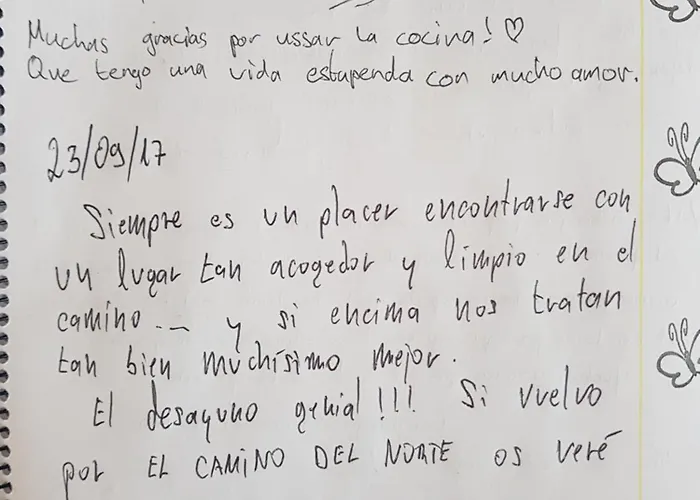 Muchas gracias por ussar la cocina! ♡
Que tengo una vida estupenda con mucho amor.
23/09/17
Siempre es un placer encontrarse con
un lugar tan acogedor y limpio en el
camino... y si encima nos tratan
tan bien muchísimo mejor.
El desayuno genial!!! Si vuelvo
por EL CAMINO DEL NORTE os veré